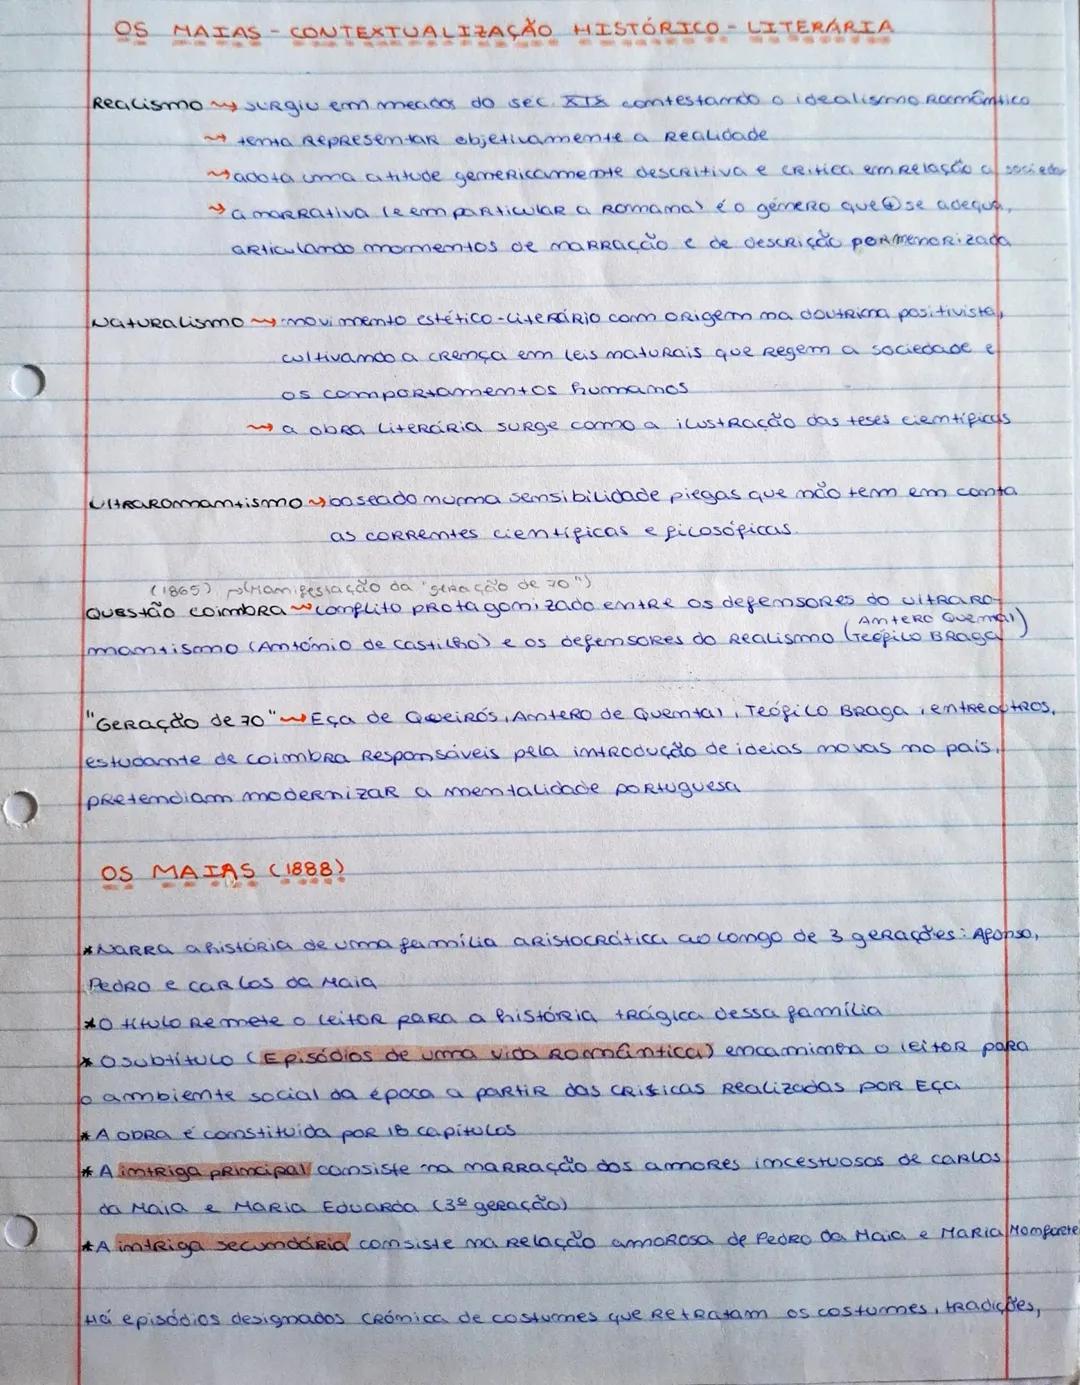 OS MAIAS - CONTEXTUALIZAÇÃO HISTÓRICO - LITERÁRIA
Realismo ⤳ surgiu em meados do sec. XIX contestando o idealismo Romântico
⤳ tenta representar objetivamente a realidade
⤳ adota uma atitude genericamente descritiva e critica em relação a socieda
⤳ a narrativa (e em particular a romana) é o género que ⊕ se adequa,
articulando momentos de narração e de descrição pormenorizada
Naturalismo ⤳ movimento estético-literário com origem na doutrina positivista,
cultivando a crença em leis naturais que regem a sociedade e
os comportamentos humanos
⤳ a obra literária surge como a ilustração das teses científicas
Ultraromantismo ⤳ baseado numa sensibilidade piegas que não tem em conta
as correntes científicas e filosóficas.
(1865) ⤳(Manifestação da "geração de 70")
Questão coimbra ⤳ conflito protagonizado entre os defensores do ultraro-
(Antero Quental
mantismo (António de Castilho) e os defensores do Realismo Teófilo Braga)
"Geração de 70" ⤳ Eça de Queirós, Antero de Quental, Teófilo Braga, entre outros,
estudante de coimbra responsáveis pela introdução de ideias novas no país,
pretendiam modernizar a mentalidade portuguesa
OS MAIAS (1888)
*Narra a história de uma família aristocrática ao longo de 3 gerações: Afonso,
Pedro e Carlos da Maia
*O título remete o leitor para a história trágica dessa família
*O subtítulo (Episódios de uma vida Romântica) encaminha o leitor para
o ambiente social da época a partir das críticas realizadas por Eça
*A obra é constituída por 18 capítulos
*A intriga principal consiste na narração dos amores incestuosos de Carlos
da Maia e Maria Eduarda (3ª geração)
*A intriga secundária consiste na relação amorosa de Pedro da Maia e Maria Monforte
Há episódios designados crónica de costumes que retratam os costumes, tradições,